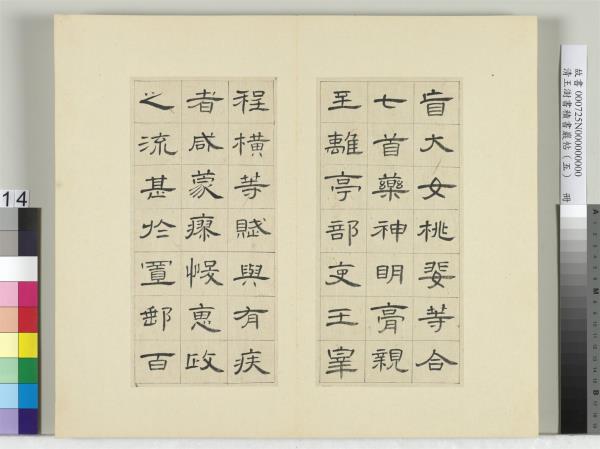 官大女桃婓等合
七首藥神明膏親
至離亭部吏王宰
程橫等賦與有疾
者咸蒙瘳悛惠政
之流甚於置郵百
故書 000725N000000000
清王澍書積書巖帖（五） 冊
14